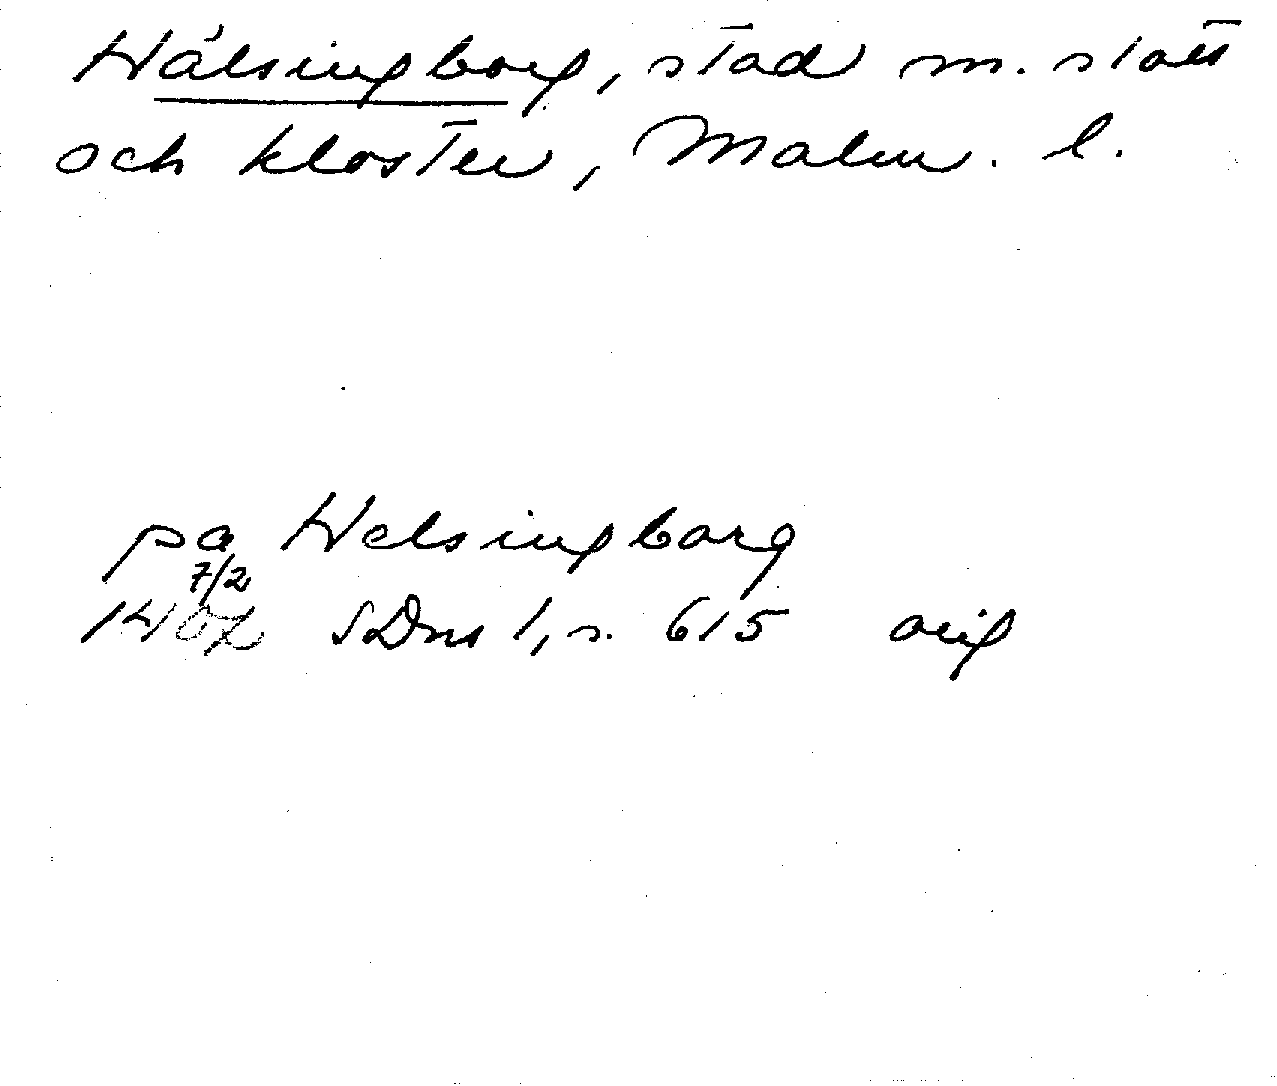 Hälsingborg, stad m. slott
och kloster, Malm. l.
pa Helsingborg
7/2
SDns 1, s. 615 orig